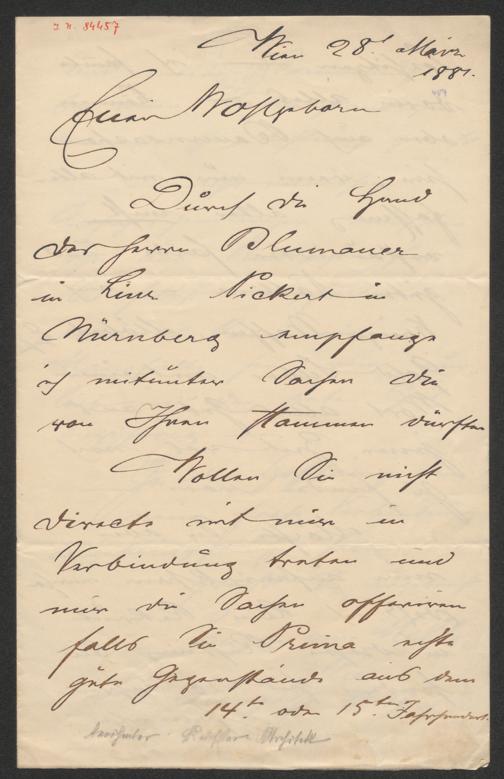 J. N. 84457
Wien 28t März
1881.
Euer Wohlgeborn
Durch die Hand
der Herrn Blumauer
in Linz Pickert in
Nürnberg empfange
ich mitunter Sachen die
von Ihnen stammen dürften
Wollen Sie nicht
directe mit mir in
Verbindung treten und
mir die Sachen offeriren
falls Sie Prima echte
gute Gegenstände aus dem
14ten oder 15ten Jahrhundert
Architekt